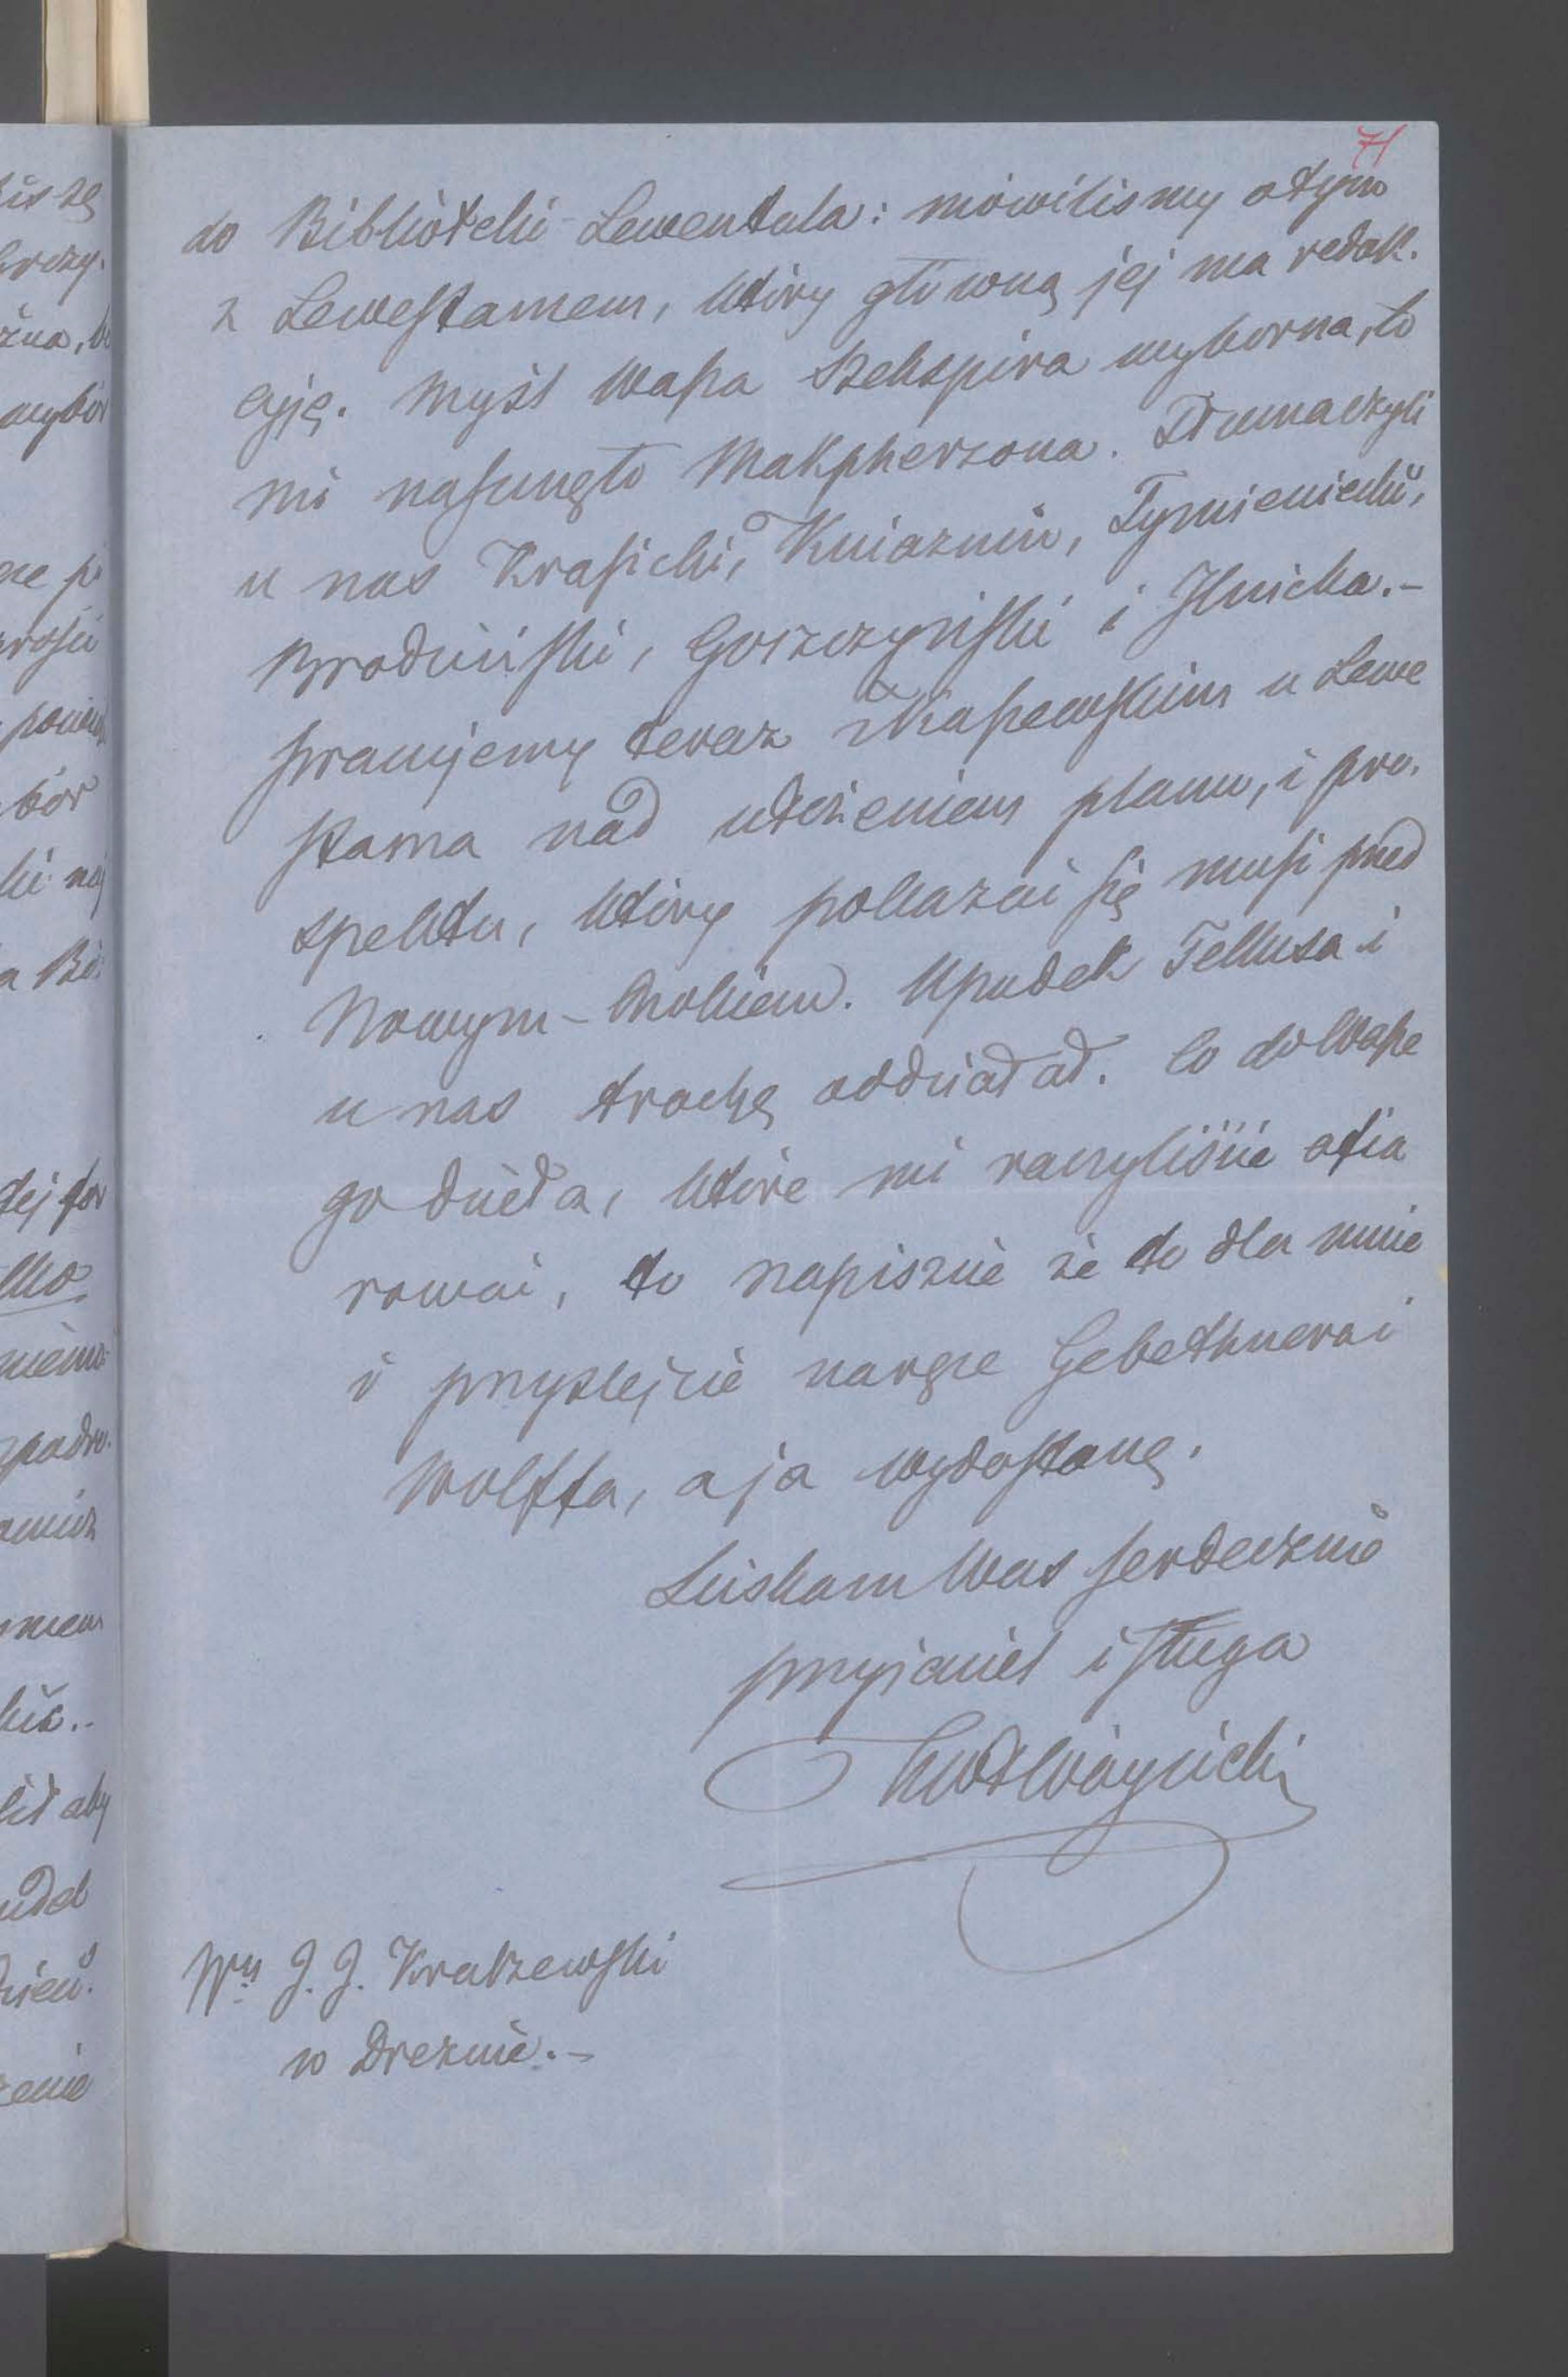 71
do Biblioteki Lewentala: mówiliśmy o tym
z Lewestamem, który główną jej ma redak.
cyję. Myśl Wasza Szekspira wyborna, to
mi nasunęło Makphersona. Tłumaczyli
u nas Krasicki, Kniaźnin, Tymieniecki,
Brodziński, Goszczyński i Ilnicka.–
Pracujemy teraz z Kaszewskim u Lewe
stama nad ułożeniem planu, i pro.
spektu, który pokazać się musi przed
Nowym-Rokiem. Upadek Tellusa i
u nas trochę oddziałał. Co do Wasze
go dzieła, które mi raczyliście ofia
rować, to napiszcie że to dla mnie
i przyszlejcie na ręce Gebethnera i
Wolffa, a ja wydostanę.
Ściskam Was serdecznie
przyjaciel i sługa
KWł Wóycicki
Wny J. J. Kraszewski
w Dreznie.–